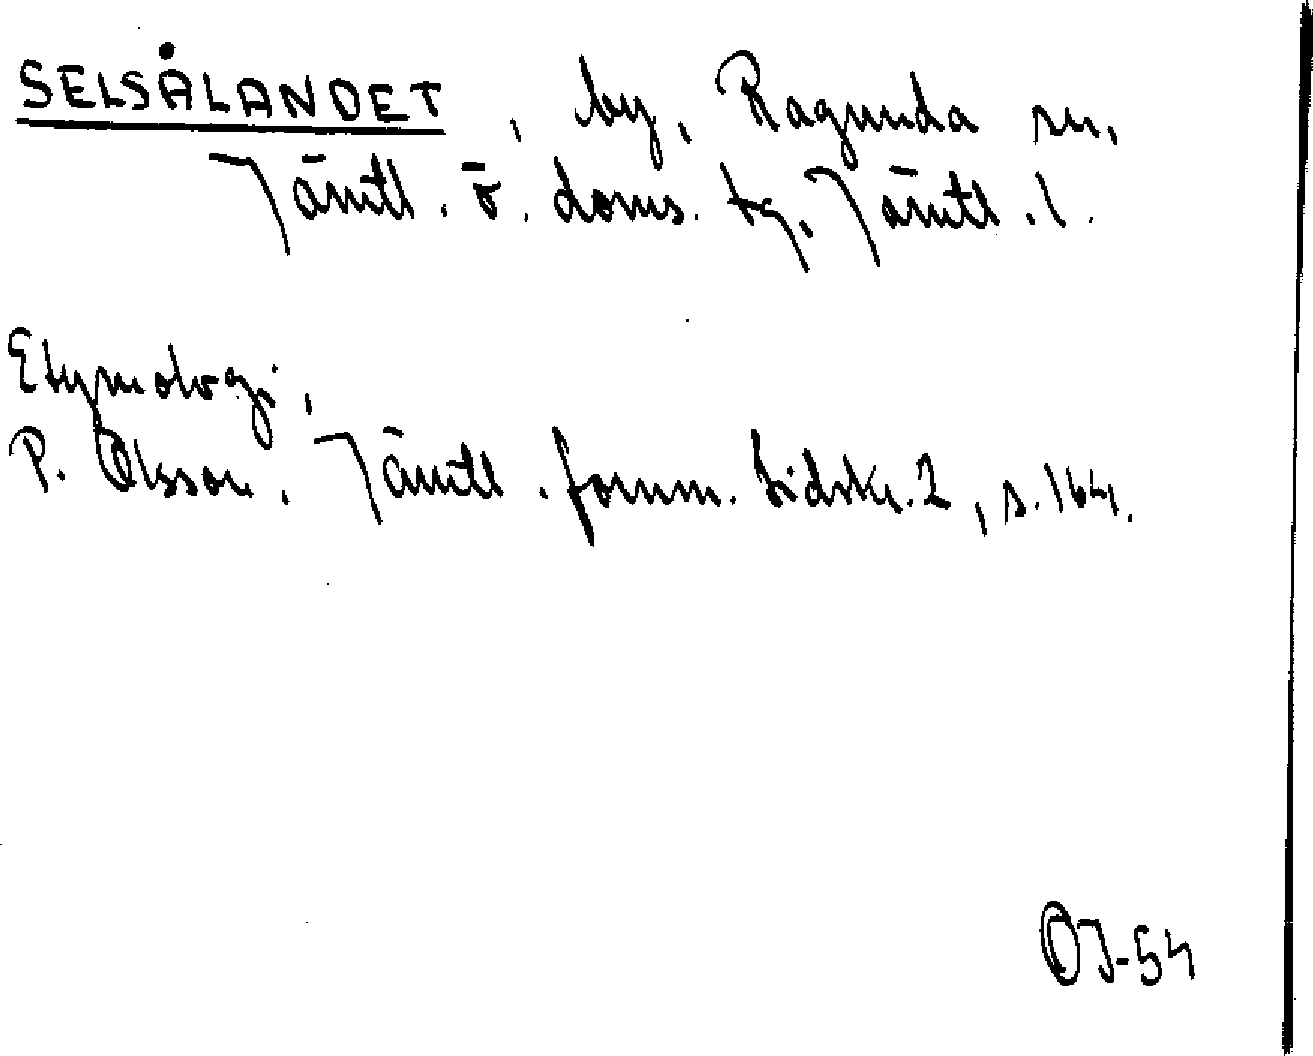 SELSÅLANDET, by, Ragunda sn,
Jämtl. ö. doms. tg, Jämtl. l.
Etymologi,
P. Olsson, Jämtl. fornm. tidskr. 2, s. 164.
OJ-54